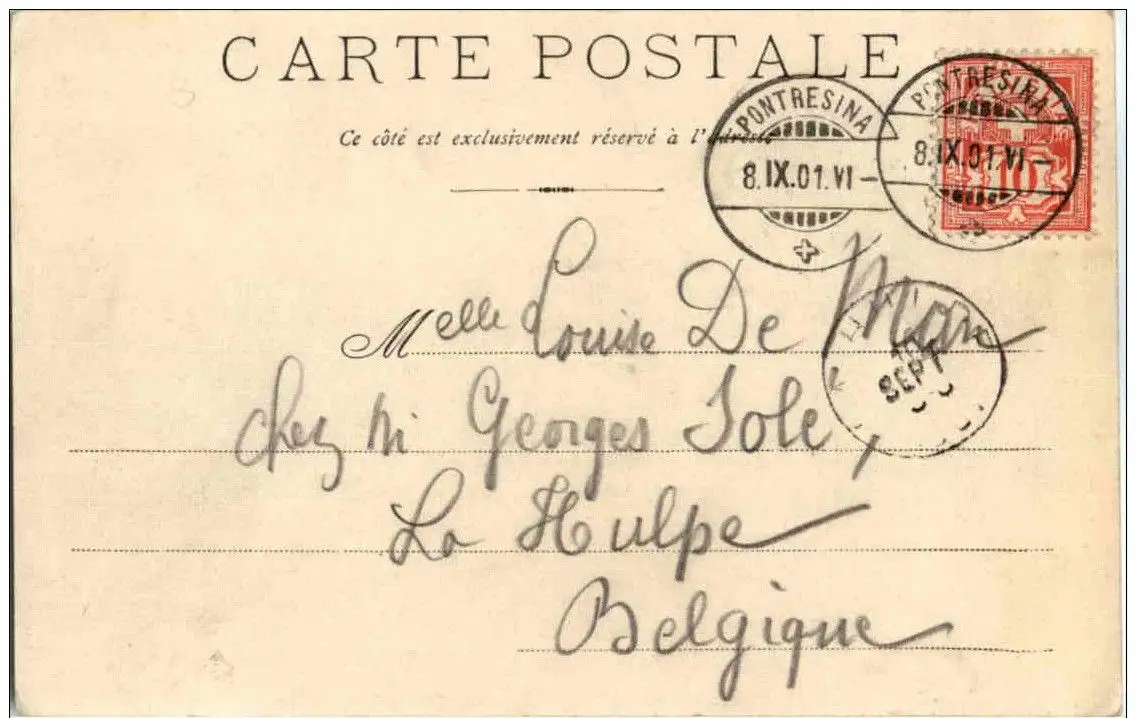 CARTE POSTALE
Ce côté est exclusivement réservé à l'adresse
PONTRESINA
8.IX.01.VI–
PONTRESINA
8.IX.01.VI–
10
Melle Louise De Man
SEPT
chez M Georges Solé,
La Hulpe
Belgique